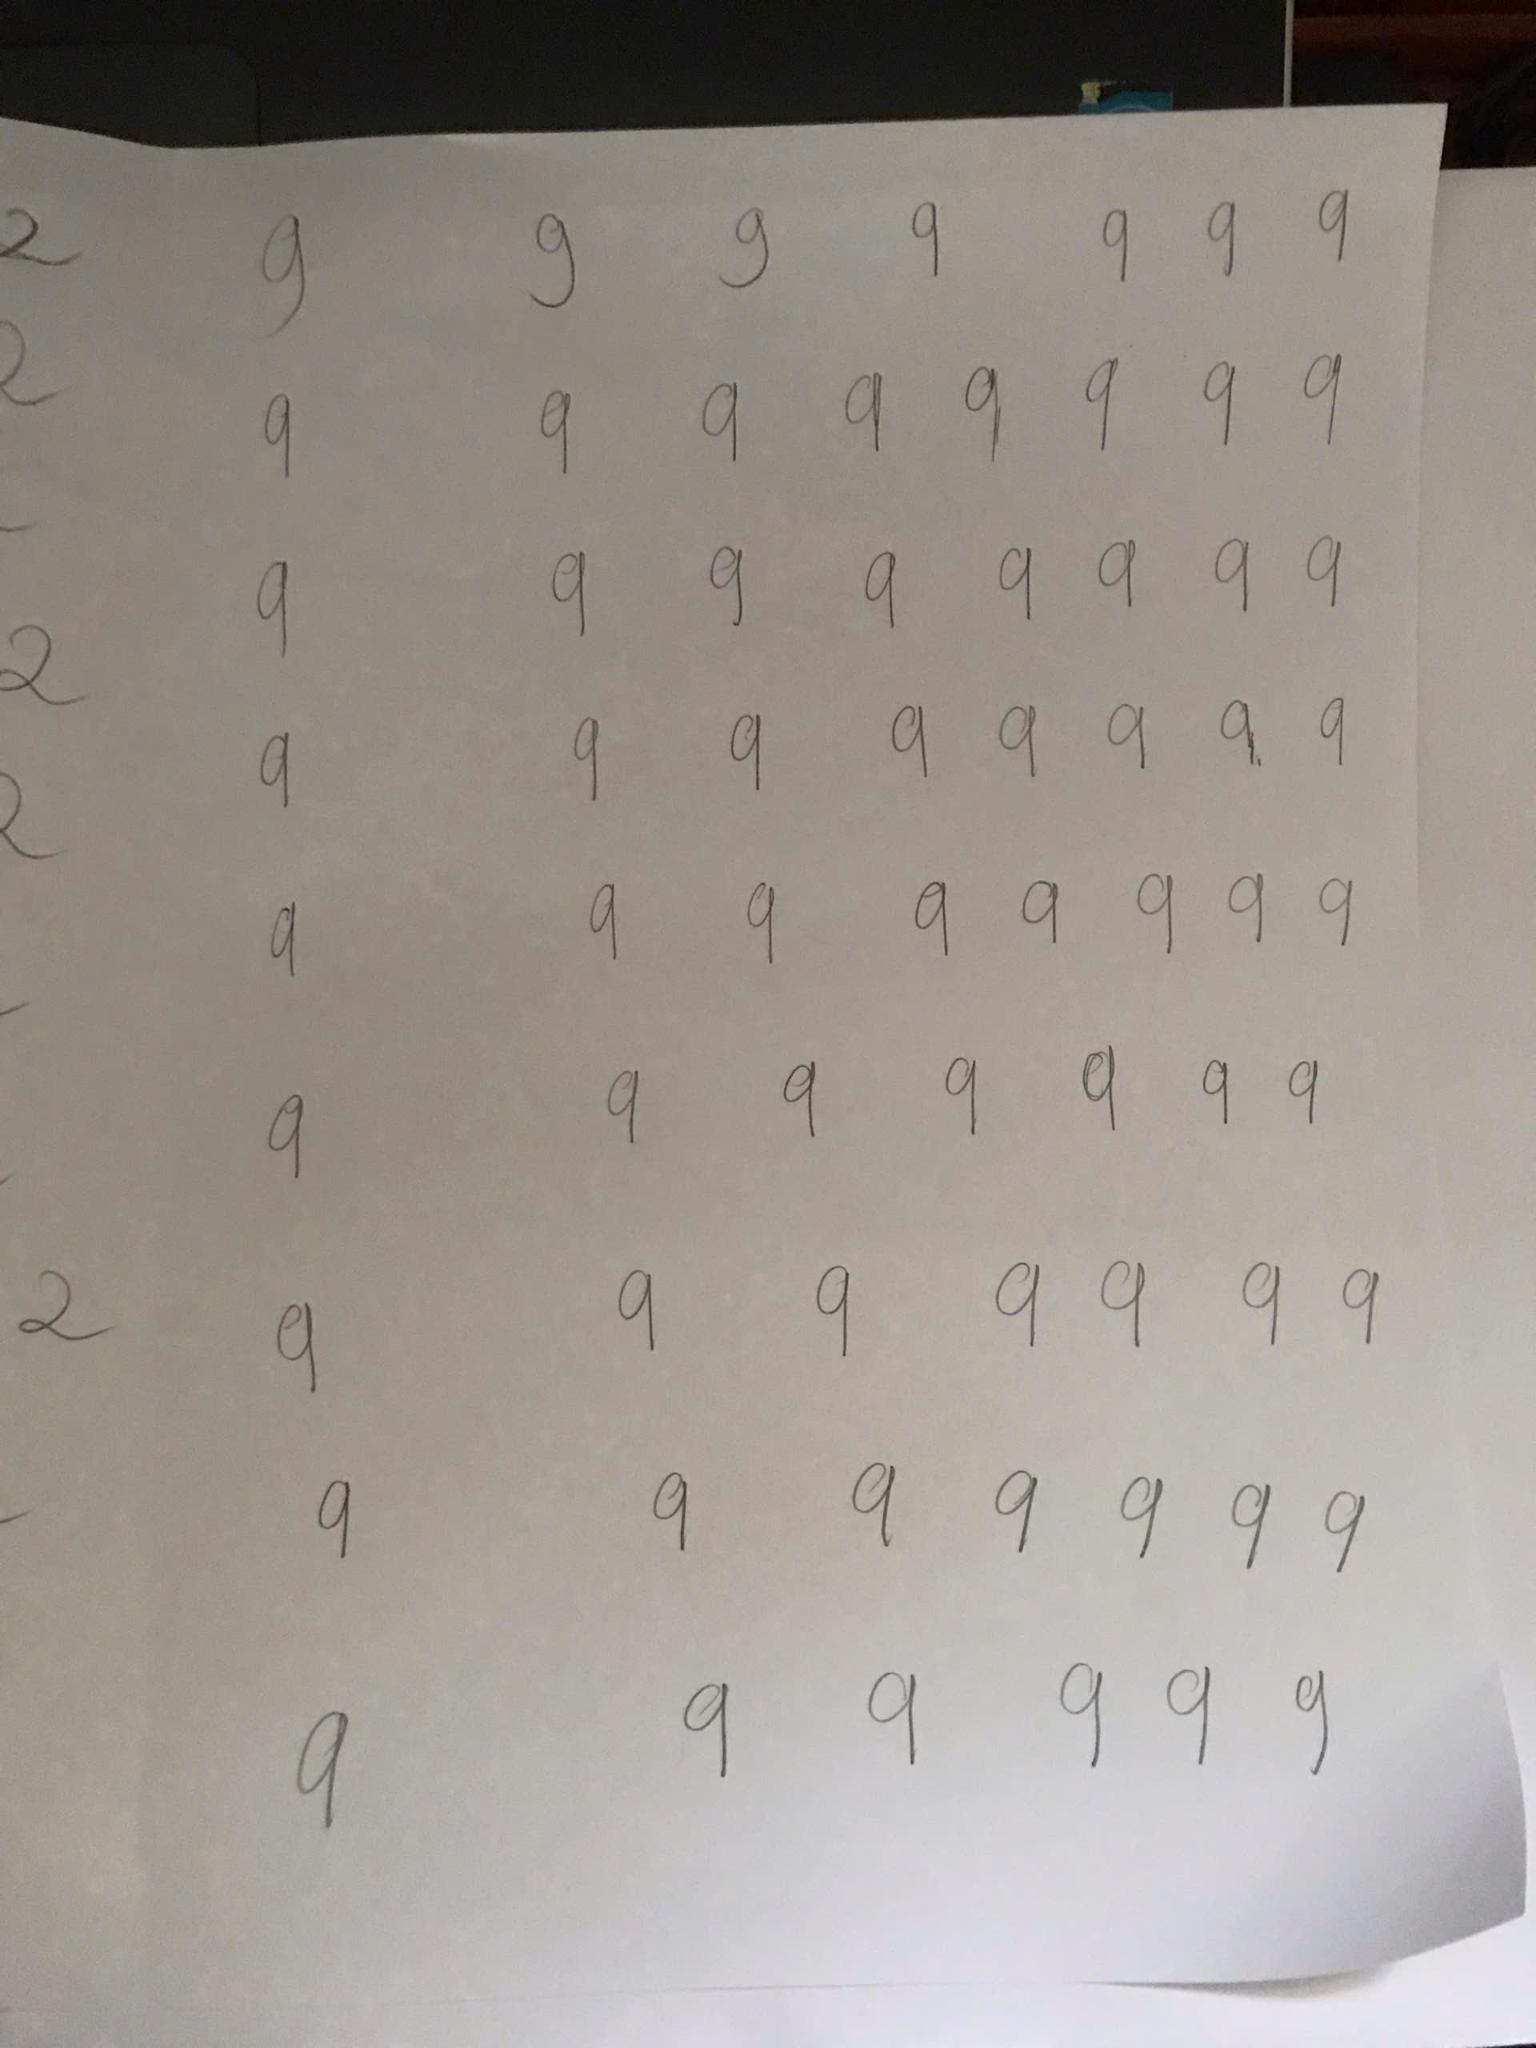 2 9 9 9 9 9 9 9
2 9 9 9 9 9 9 9 9
9 9 9 9 9 9 9 9
2 9 9 9 9 9 9 9 9
2 9 9 9 9 9 9 9 9
9 9 9 9 9 9 9
2 9 9 9 9 9 9 9
9 9 9 9 9 9 9
9 9 9 9 9 9